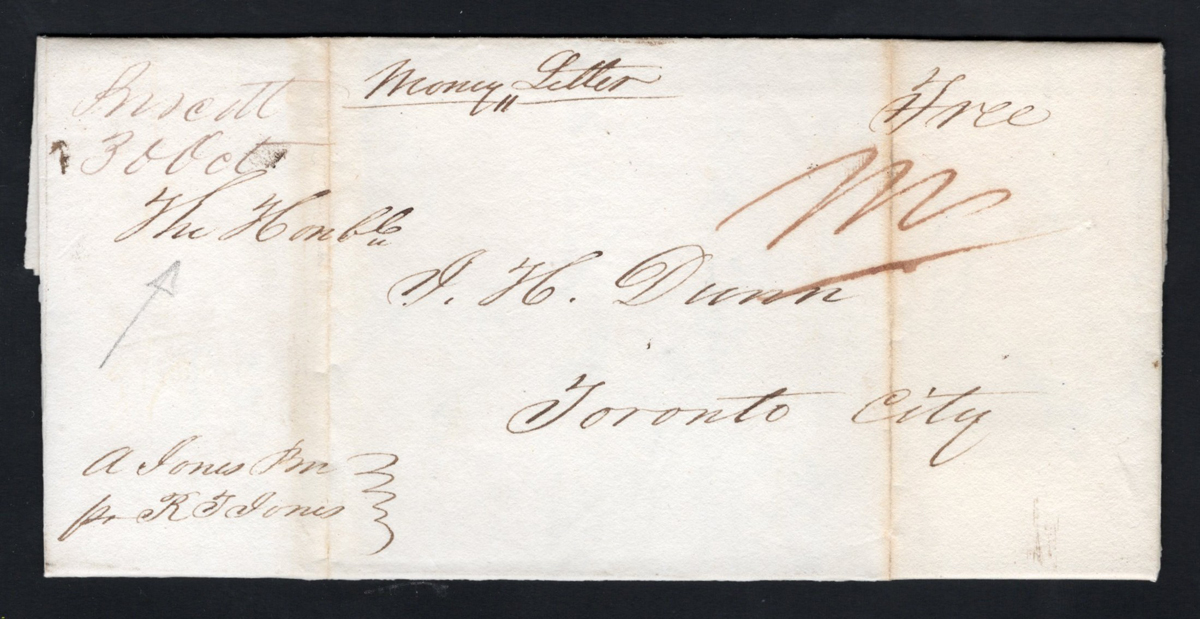 Money Letter
Prescott
30 Oct
Free
M
The Honble
J. H. Dunn
Toronto City
A Jones Pm
pr R F Jones